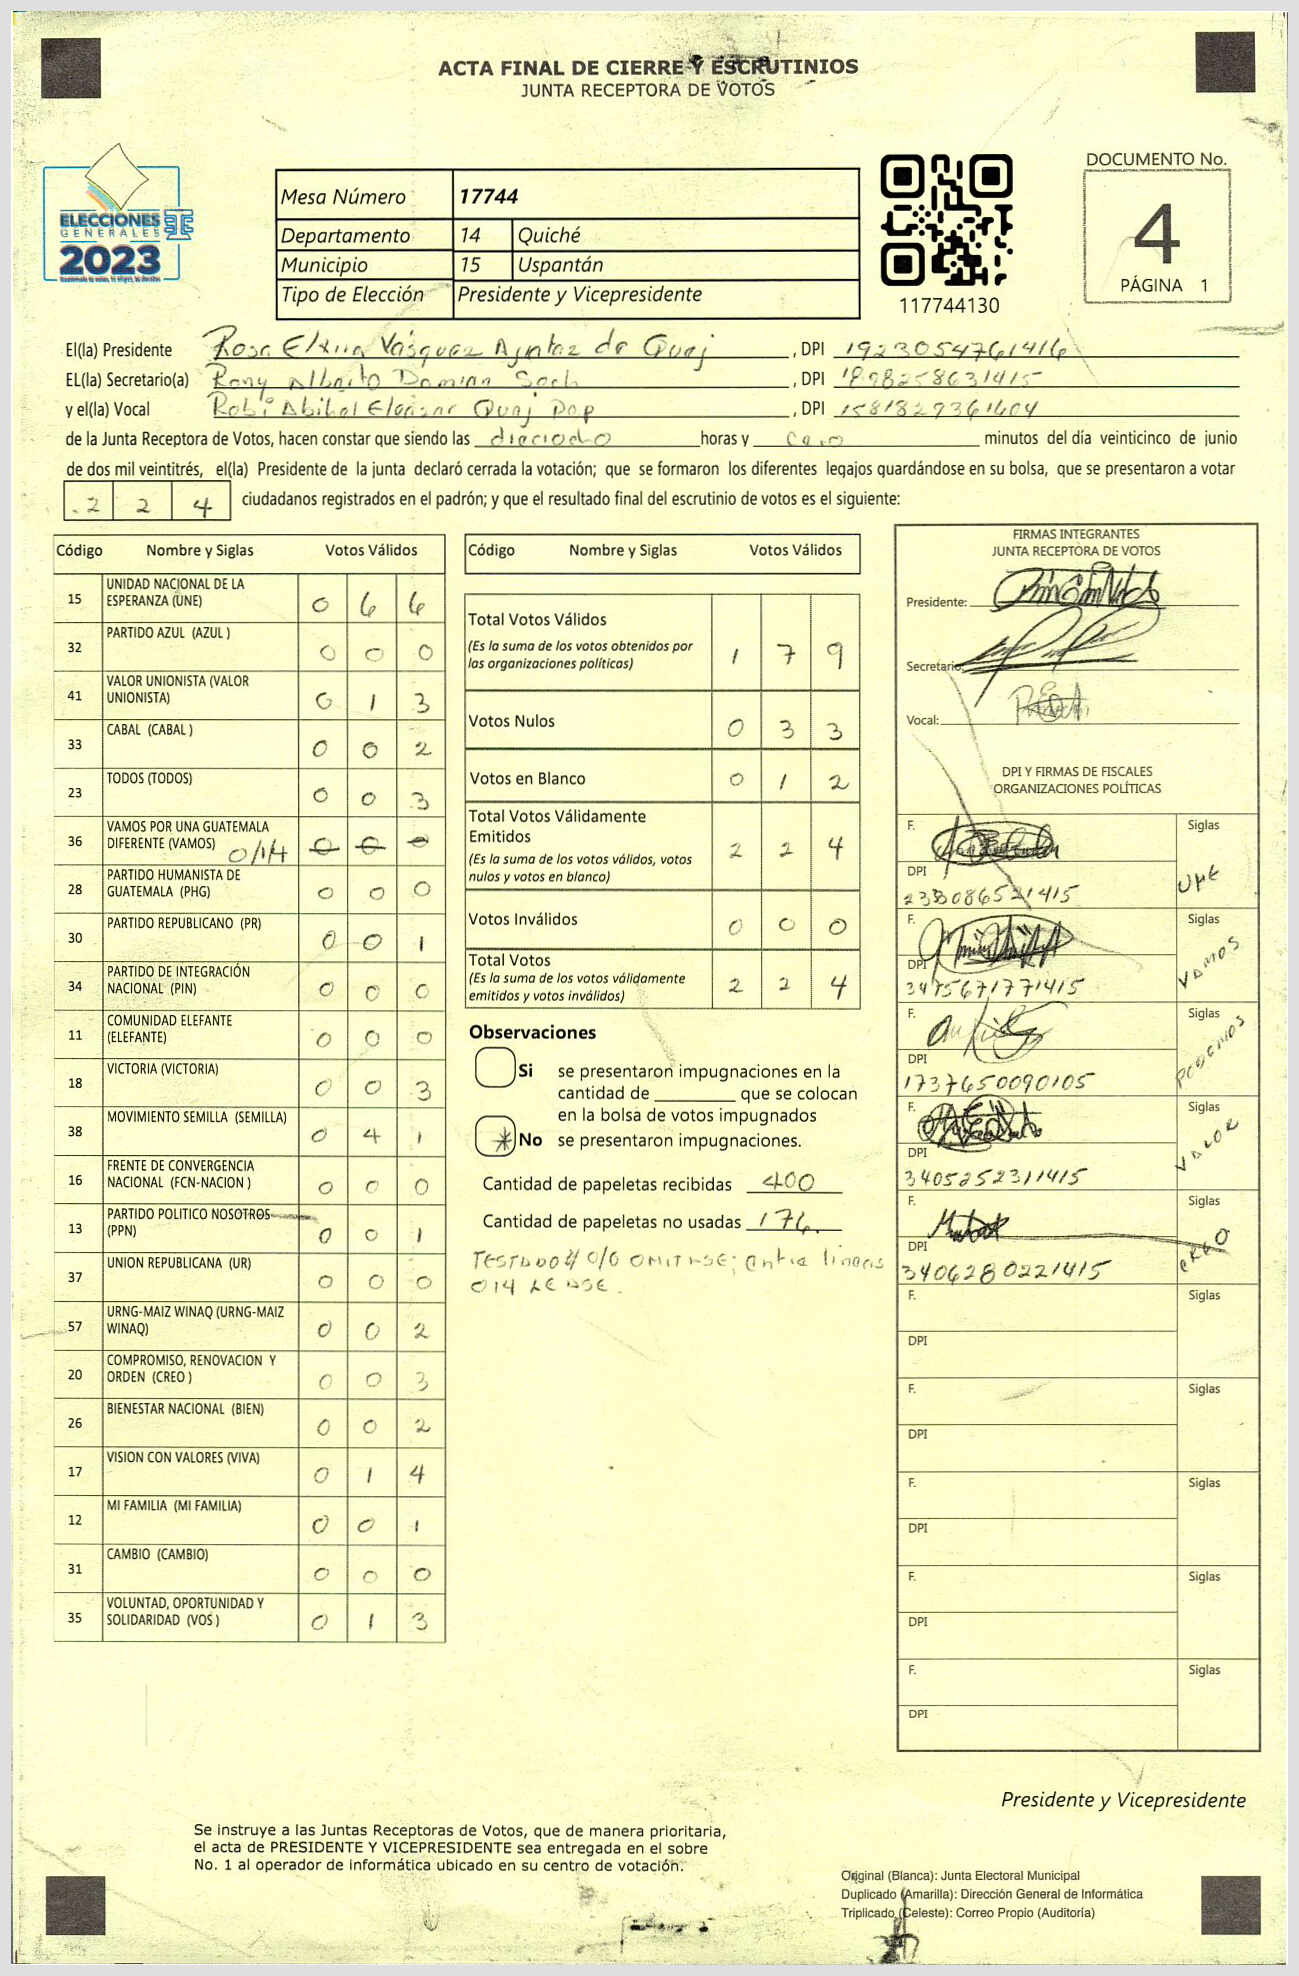 ACTA FINAL DE CIERRE Y ESCRUTINIOS
JUNTA RECEPTORA DE VOTOS
ELECCIONES
GENERALES
2023
Mesa Número 17744
Departamento 14 Quiché
Municipio 15 Uspantán
Tipo de Elección Presidente y Vicepresidente
117744130
DOCUMENTO No.
4
PÁGINA 1
El(la) Presidente Rosa Vásquez de , DPI 1923054761416
EL(la) Secretario(a) Rony Alberto Damian , DPI 1898258631415
y el(la) Vocal , DPI 1581829361404
de la Junta Receptora de Votos, hacen constar que siendo las dieciocho horas y cero minutos del día veinticinco de junio
de dos mil veintitrés, el(la) Presidente de la junta declaró cerrada la votación; que se formaron los diferentes legajos guardándose en su bolsa, que se presentaron a votar
2 2 4 ciudadanos registrados en el padrón; y que el resultado final del escrutinio de votos es el siguiente:
Código Nombre y Siglas Votos Válidos
15 UNIDAD NACIONAL DE LA ESPERANZA (UNE) 0 6 6
32 PARTIDO AZUL (AZUL ) 0 0 0
41 VALOR UNIONISTA (VALOR UNIONISTA) 0 1 3
33 CABAL (CABAL ) 0 0 2
23 TODOS (TODOS) 0 0 3
36 VAMOS POR UNA GUATEMALA DIFERENTE (VAMOS) 0/14 0 0 0
28 PARTIDO HUMANISTA DE GUATEMALA (PHG) 0 0 0
30 PARTIDO REPUBLICANO (PR) 0 0 1
34 PARTIDO DE INTEGRACIÓN NACIONAL (PIN) 0 0 0
11 COMUNIDAD ELEFANTE (ELEFANTE) 0 0 0
18 VICTORIA (VICTORIA) 0 0 3
38 MOVIMIENTO SEMILLA (SEMILLA) 0 4 1
16 FRENTE DE CONVERGENCIA NACIONAL (FCN-NACION ) 0 0 0
13 PARTIDO POLITICO NOSOTROS (PPN) 0 0 1
37 UNION REPUBLICANA (UR) 0 0 0
57 URNG-MAIZ WINAQ (URNG-MAIZ WINAQ) 0 0 2
20 COMPROMISO, RENOVACION Y ORDEN (CREO ) 0 0 3
26 BIENESTAR NACIONAL (BIEN) 0 0 2
17 VISION CON VALORES (VIVA) 0 1 4
12 MI FAMILIA (MI FAMILIA) 0 0 1
31 CAMBIO (CAMBIO) 0 0 0
35 VOLUNTAD, OPORTUNIDAD Y SOLIDARIDAD (VOS ) 0 1 3
Código Nombre y Siglas Votos Válidos
Total Votos Válidos 1 7 9
(Es la suma de los votos obtenidos por
las organizaciones políticas)
Votos Nulos 0 3 3
Votos en Blanco 0 1 2
Total Votos Válidamente
Emitidos 2 2 4
(Es la suma de los votos válidos, votos
nulos y votos en blanco)
Votos Inválidos 0 0 0
Total Votos 2 2 4
(Es la suma de los votos válidamente
emitidos y votos inválidos)
Observaciones
Si se presentaron impugnaciones en la
cantidad de ________ que se colocan
en la bolsa de votos impugnados
No se presentaron impugnaciones.
Cantidad de papeletas recibidas 400
Cantidad de papeletas no usadas 176
0/0 OMITASE; entre lineas
014 LEASE.
FIRMAS INTEGRANTES
JUNTA RECEPTORA DE VOTOS
Presidente:
Secretario:
Vocal:
DPI Y FIRMAS DE FISCALES
ORGANIZACIONES POLÍTICAS
F. Siglas
DPI UNE
F. Siglas
DPI VAMOS
3475671771415
F. Siglas
DPI PODEMOS
1737650090105
F. Siglas
DPI VALOR
3405252311415
F. Siglas
DPI CREO
3406280221415
F. Siglas
DPI
F. Siglas
DPI
F. Siglas
DPI
F. Siglas
DPI
F. Siglas
DPI
Presidente y Vicepresidente
Se instruye a las Juntas Receptoras de Votos, que de manera prioritaria,
el acta de PRESIDENTE Y VICEPRESIDENTE sea entregada en el sobre
No. 1 al operador de informática ubicado en su centro de votación.
Original (Blanca): Junta Electoral Municipal
Duplicado (Amarilla): Dirección General de Informática
Triplicado (Celeste): Correo Propio (Auditoría)